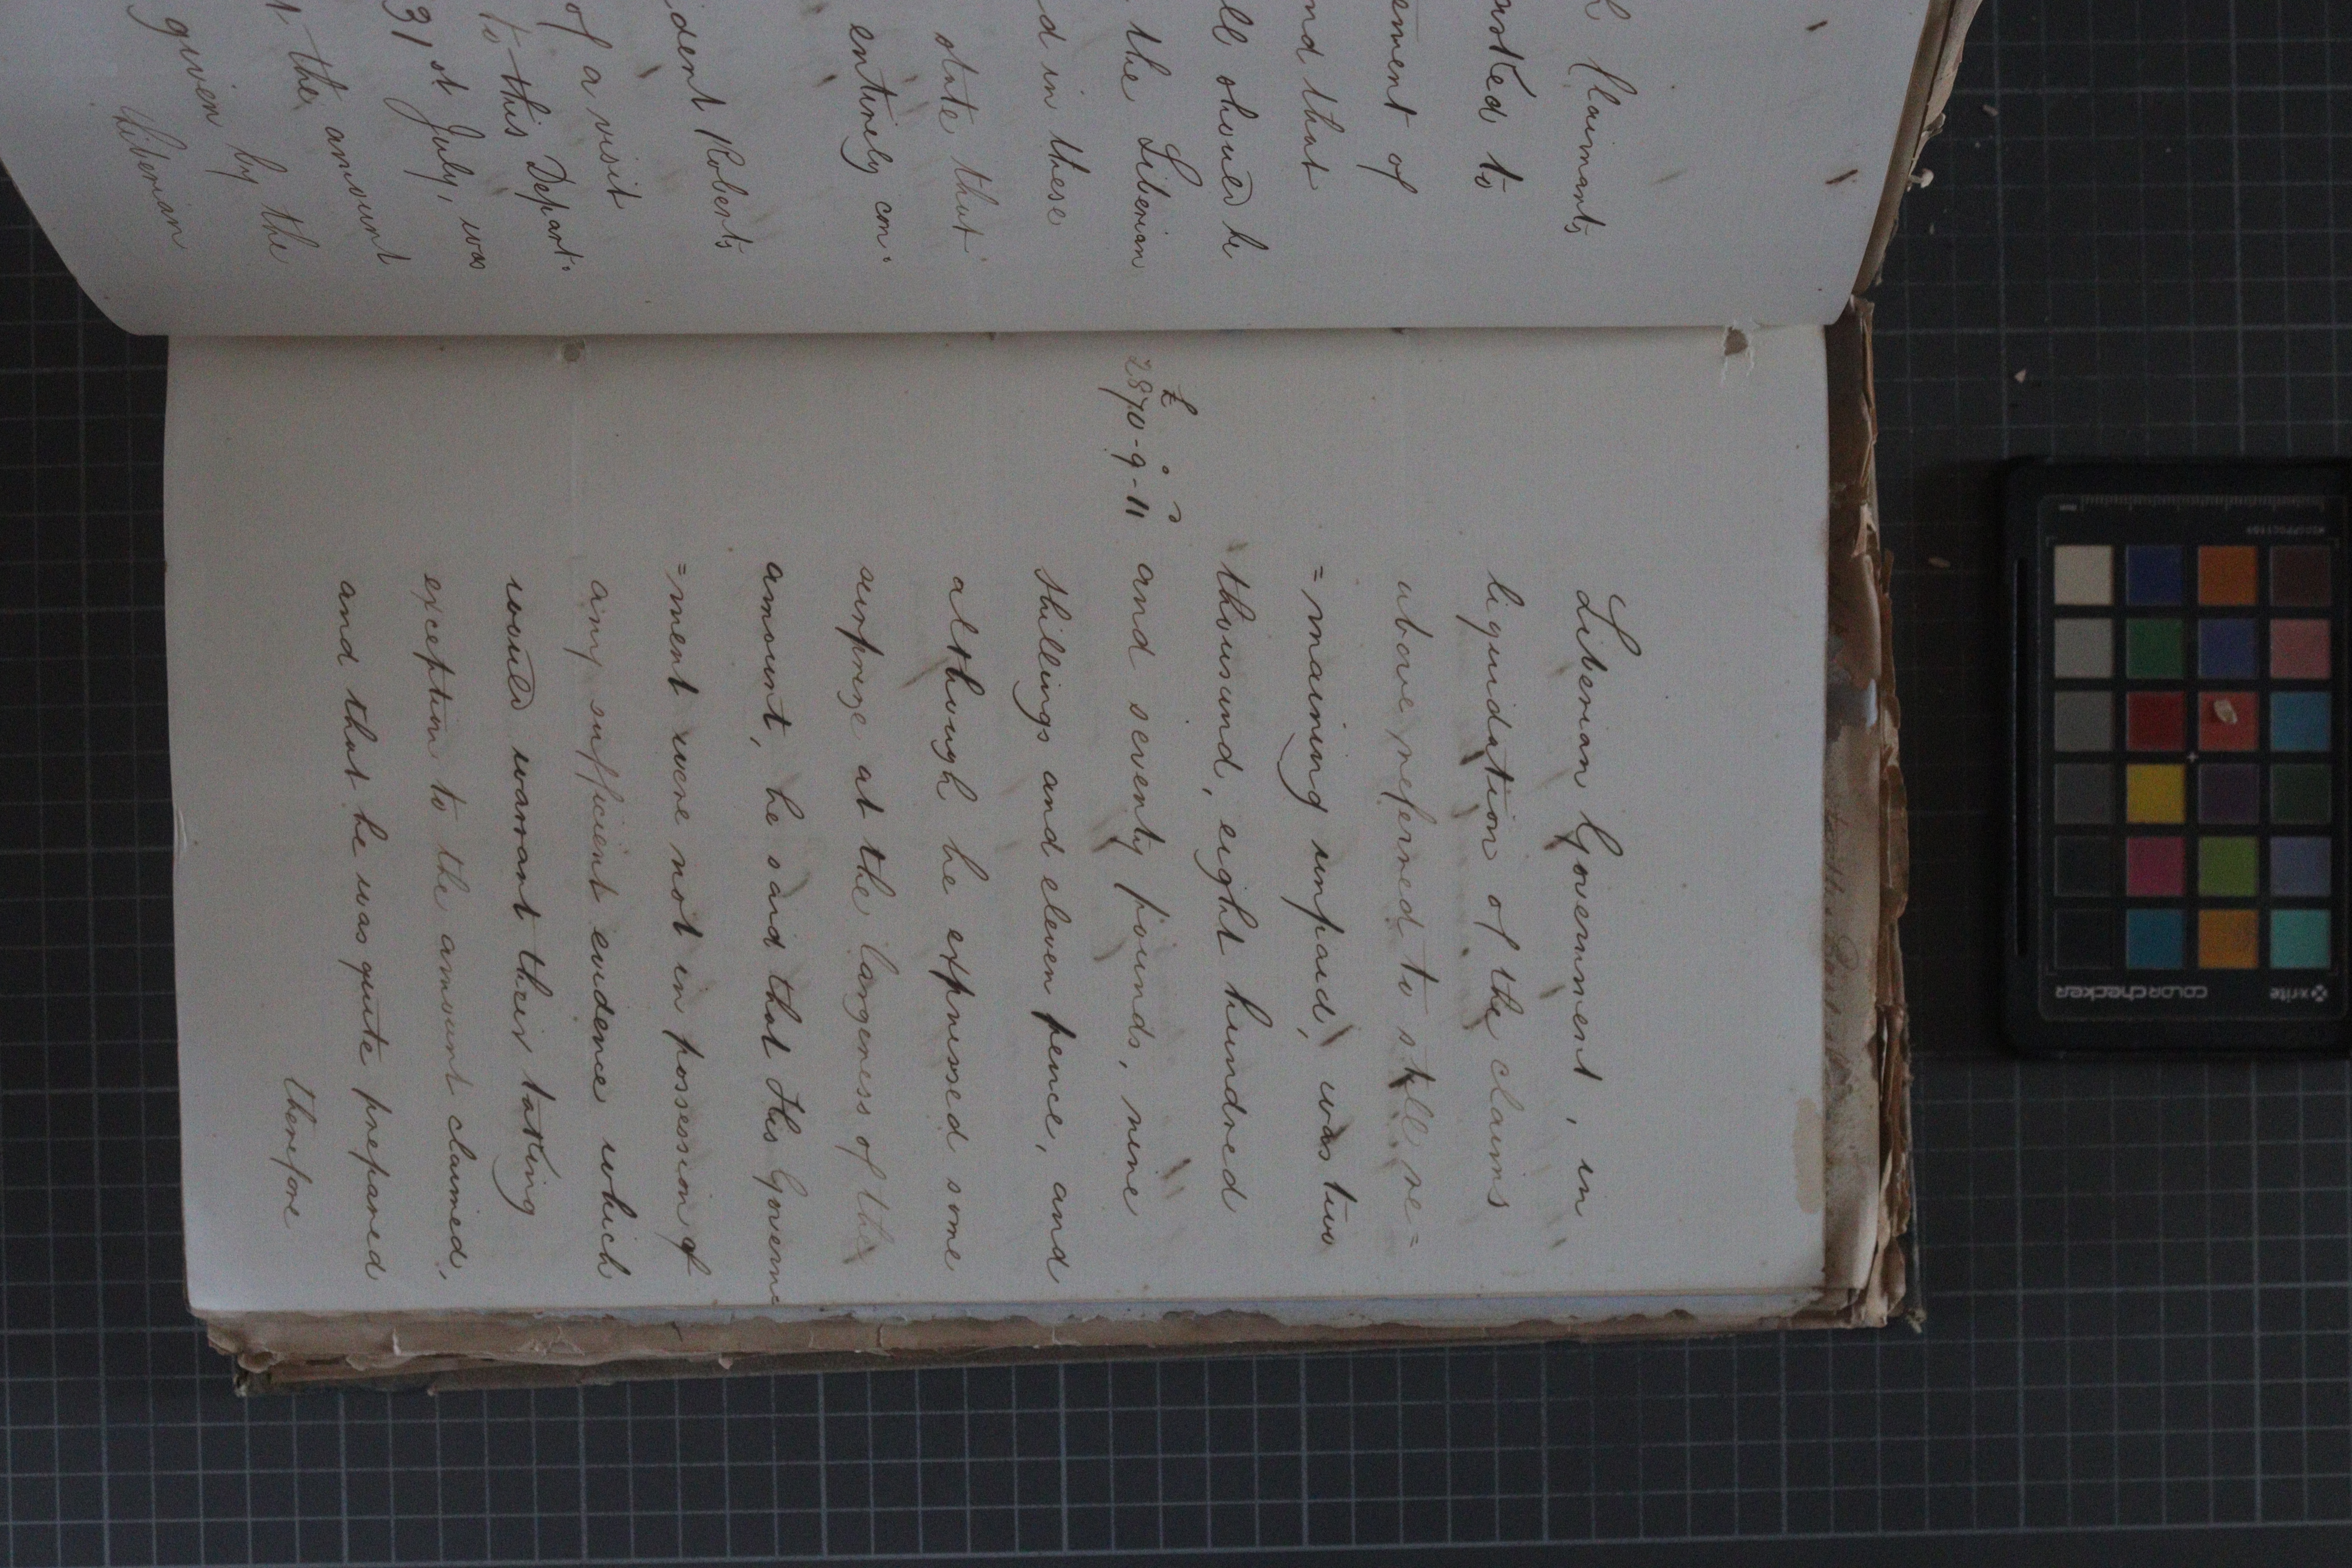 Claimants
to
ment of
nd that
ll should be
the Liberian
d in these
state that
entirely con:
ident Roberts
of a visit
to this Depart:
31st July, was
the amount
given by the
Liberian
Liberian Government, in
liquidation of the claims
above referred to still re=
=maining unpaid, was two
thousand, eight hundred
£ s d
2870-9-11 and seventy pounds, nine
shillings and eleven pence, and
although he expressed some
surprize at the largeness of the
amount, he said that His Governm
=ment were not in possession of
any sufficient evidence which
would warrant their taking
exception to the amount claimed,
and that he was quite prepared
therefore
x-rite
colorchecker